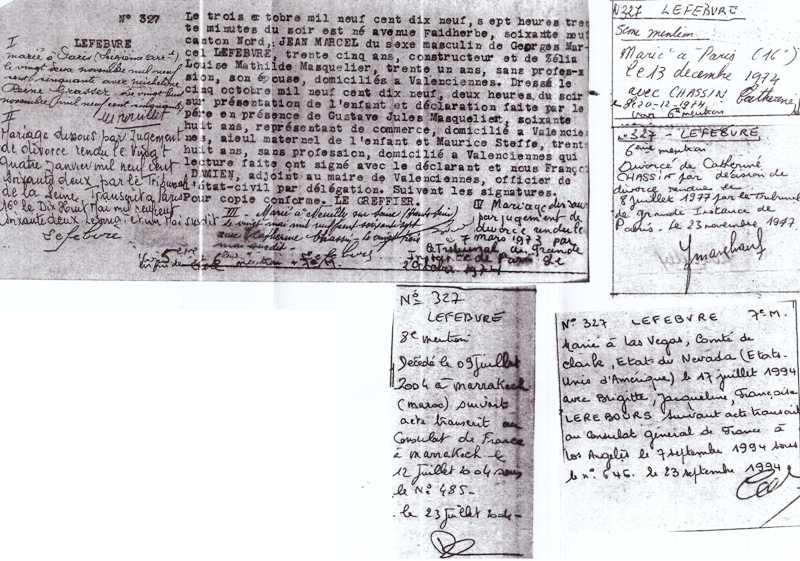 N° 327
LEFEBURE
Le trois octobre mil neuf cent dix neuf, sept heures tren
te minutes du soir est né avenue Faidherbe, soixante neuf
canton Nord, JEAN MARCEL du sexe masculin de Georges Mar-
cel LEFEBURE, trente cinq ans, constructeur et de Zélia
Louise Mathilde Masquelier, trente un ans, sans profes-
sion, son épouse, domiciliés à Valenciennes. Dressé le
cinq octobre mil neuf cent dix neuf, deux heures du soir
sur présentation de l'enfant et déclaration faite par le
père en présence de Gustave Jules Masquelier, soixante
huit ans, représentant de commerce, domicilié à Valencien
nes, aieul maternel de l'enfant et Maurice Steffe, trente
huit ans, sans profession, domicilié à Valenciennes qui
lecture faite ont signé avec le déclarant et nous Franço
DAMIEN, adjoint au maire de Valenciennes, officier de
l'état-civil par délégation. Suivent les signatures.
Pour copie conforme. LE GREFFIER.
I
marié à Paris
le vingt deux novembre mil neuf
cent cinquante avec
Grasser. Le vingt
novembre mil neuf cent cinquante
II
Mariage dissous par Jugement
de divorce rendu le Vingt
quatre janvier mil neuf cent
soixante deux par le Tribunal
de la Seine. Transcrit à Paris
16° le Dix Huit Mai mil neuf cent
soixante deux
Lefebvre
III Marié à Neuilly sur Seine
mil neuf cent soixante sept
avec Catherine Chassin
IV Mariage dissous
par jugement de
divorce rendu le
7 mars 1973 par
le Tribunal de Grande
Instance de Paris le
N327 LEFEBURE
5ème mention
Marié à Paris (16°)
le 13 décembre 1974
avec CHASSIN Catherine
le 20-12-1974
voir 6° mention
N° 327 - LEFEBURE
6ème mention
Divorcé de Catherine
CHASSIN par décision de
divorce rendue le
8 juillet 1977 par le Tribunal
de Grande Instance de
Paris. le 23 novembre 1977
N° 327
LEFEBURE
8e mention
Décédé le 09 juillet
2004 à Marrakech
(Maroc) suivant
acte transcrit au
Consulat de France
à Marrakech le
12 juillet 2004 sous
le N° 485-
le 23 juillet 2004-
N° 327 LEFEBURE 7e M.
Marié à Las Vegas, Comté de
Clarke, Etat du Nevada (Etats-
Unis d'Amérique) le 17 juillet 1994
avec Brigitte, Jacqueline, Françoise
LEREBOURS suivant acte transcrit
au Consulat général de France à
Los Angelès le 7 septembre 1994 sous
le n° 646. le 23 septembre 1994